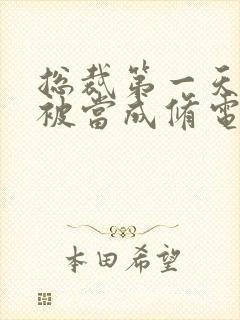 总裁第一天
被當成脩電
本田希望